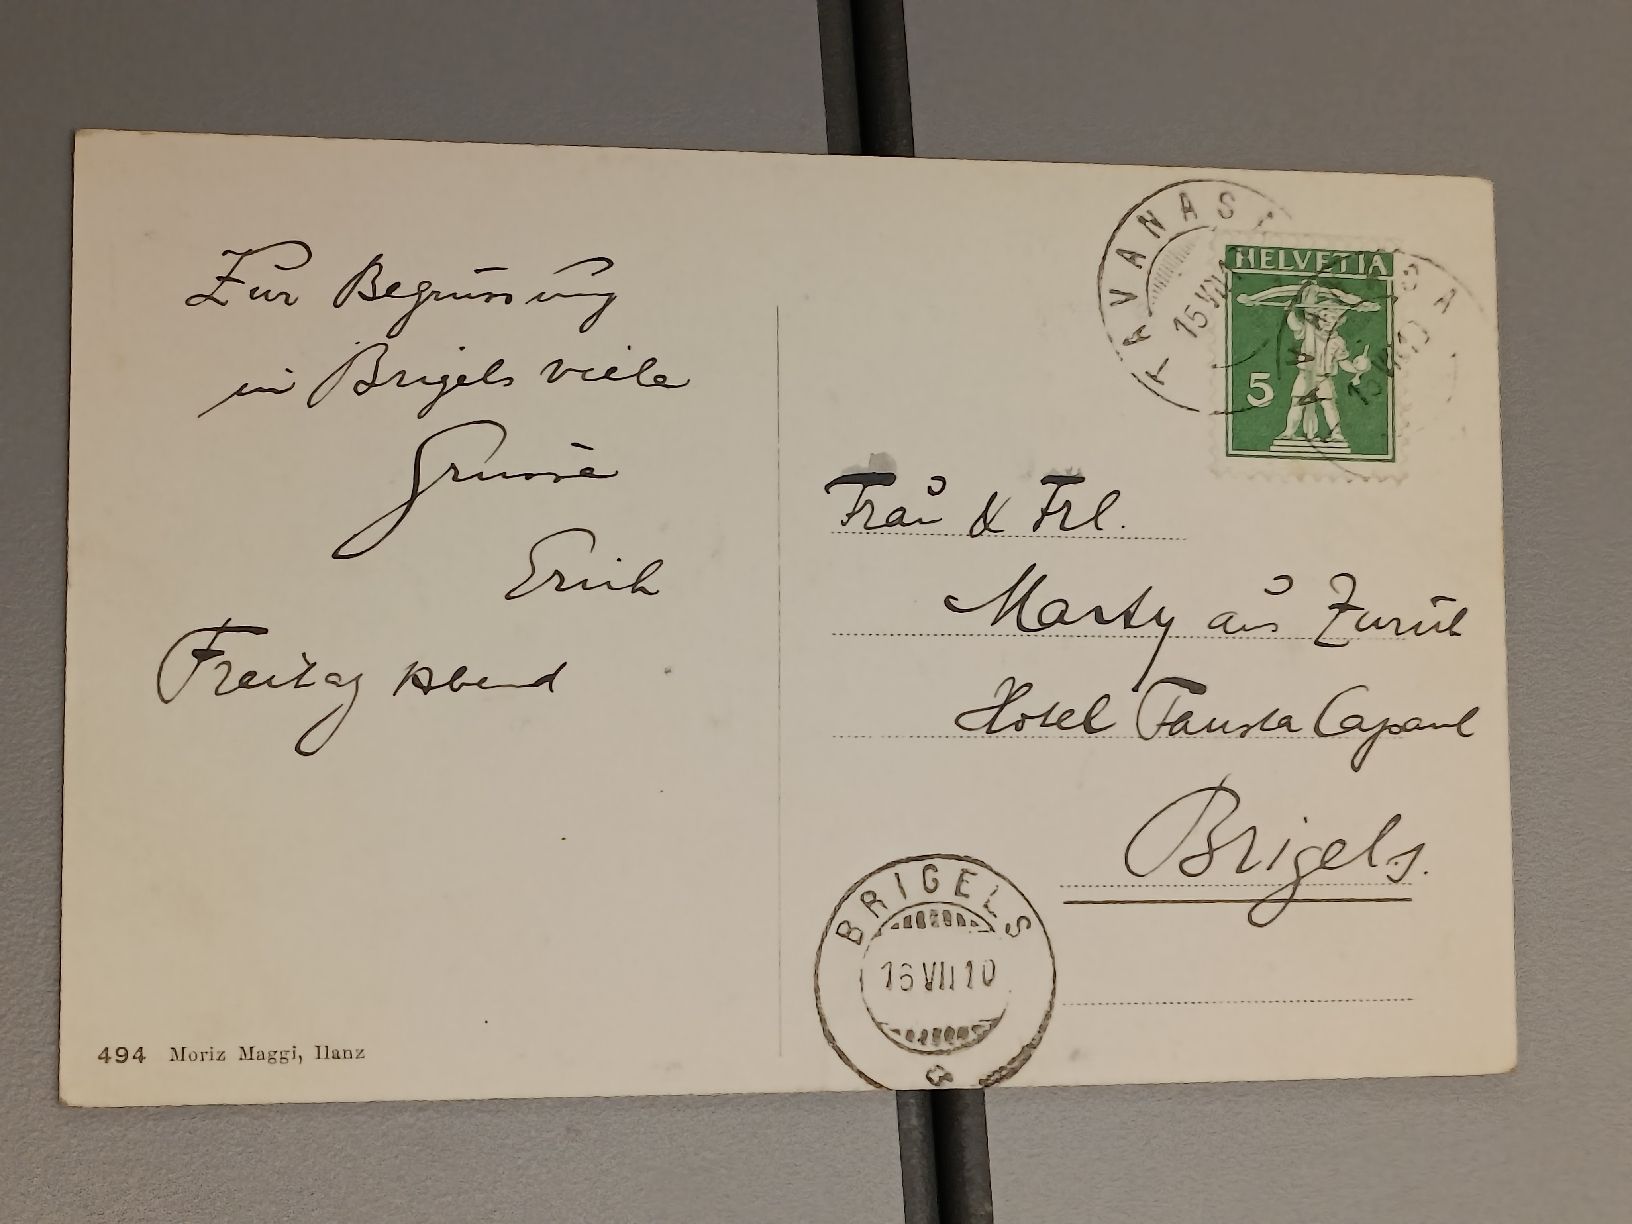 Zur Begrüssung
in Brigels viele
Grüsse
Erich
Freitag Abend
494 Moriz Maggi, Ilanz
TAVANASA
15 VII
HELVETIA
5
TAVANASA
15 VII 10
Frau & Frl.
Marty aus Zürich
Hotel Fausta Capaul
Brigels.
BRIGELS
16 VII 10